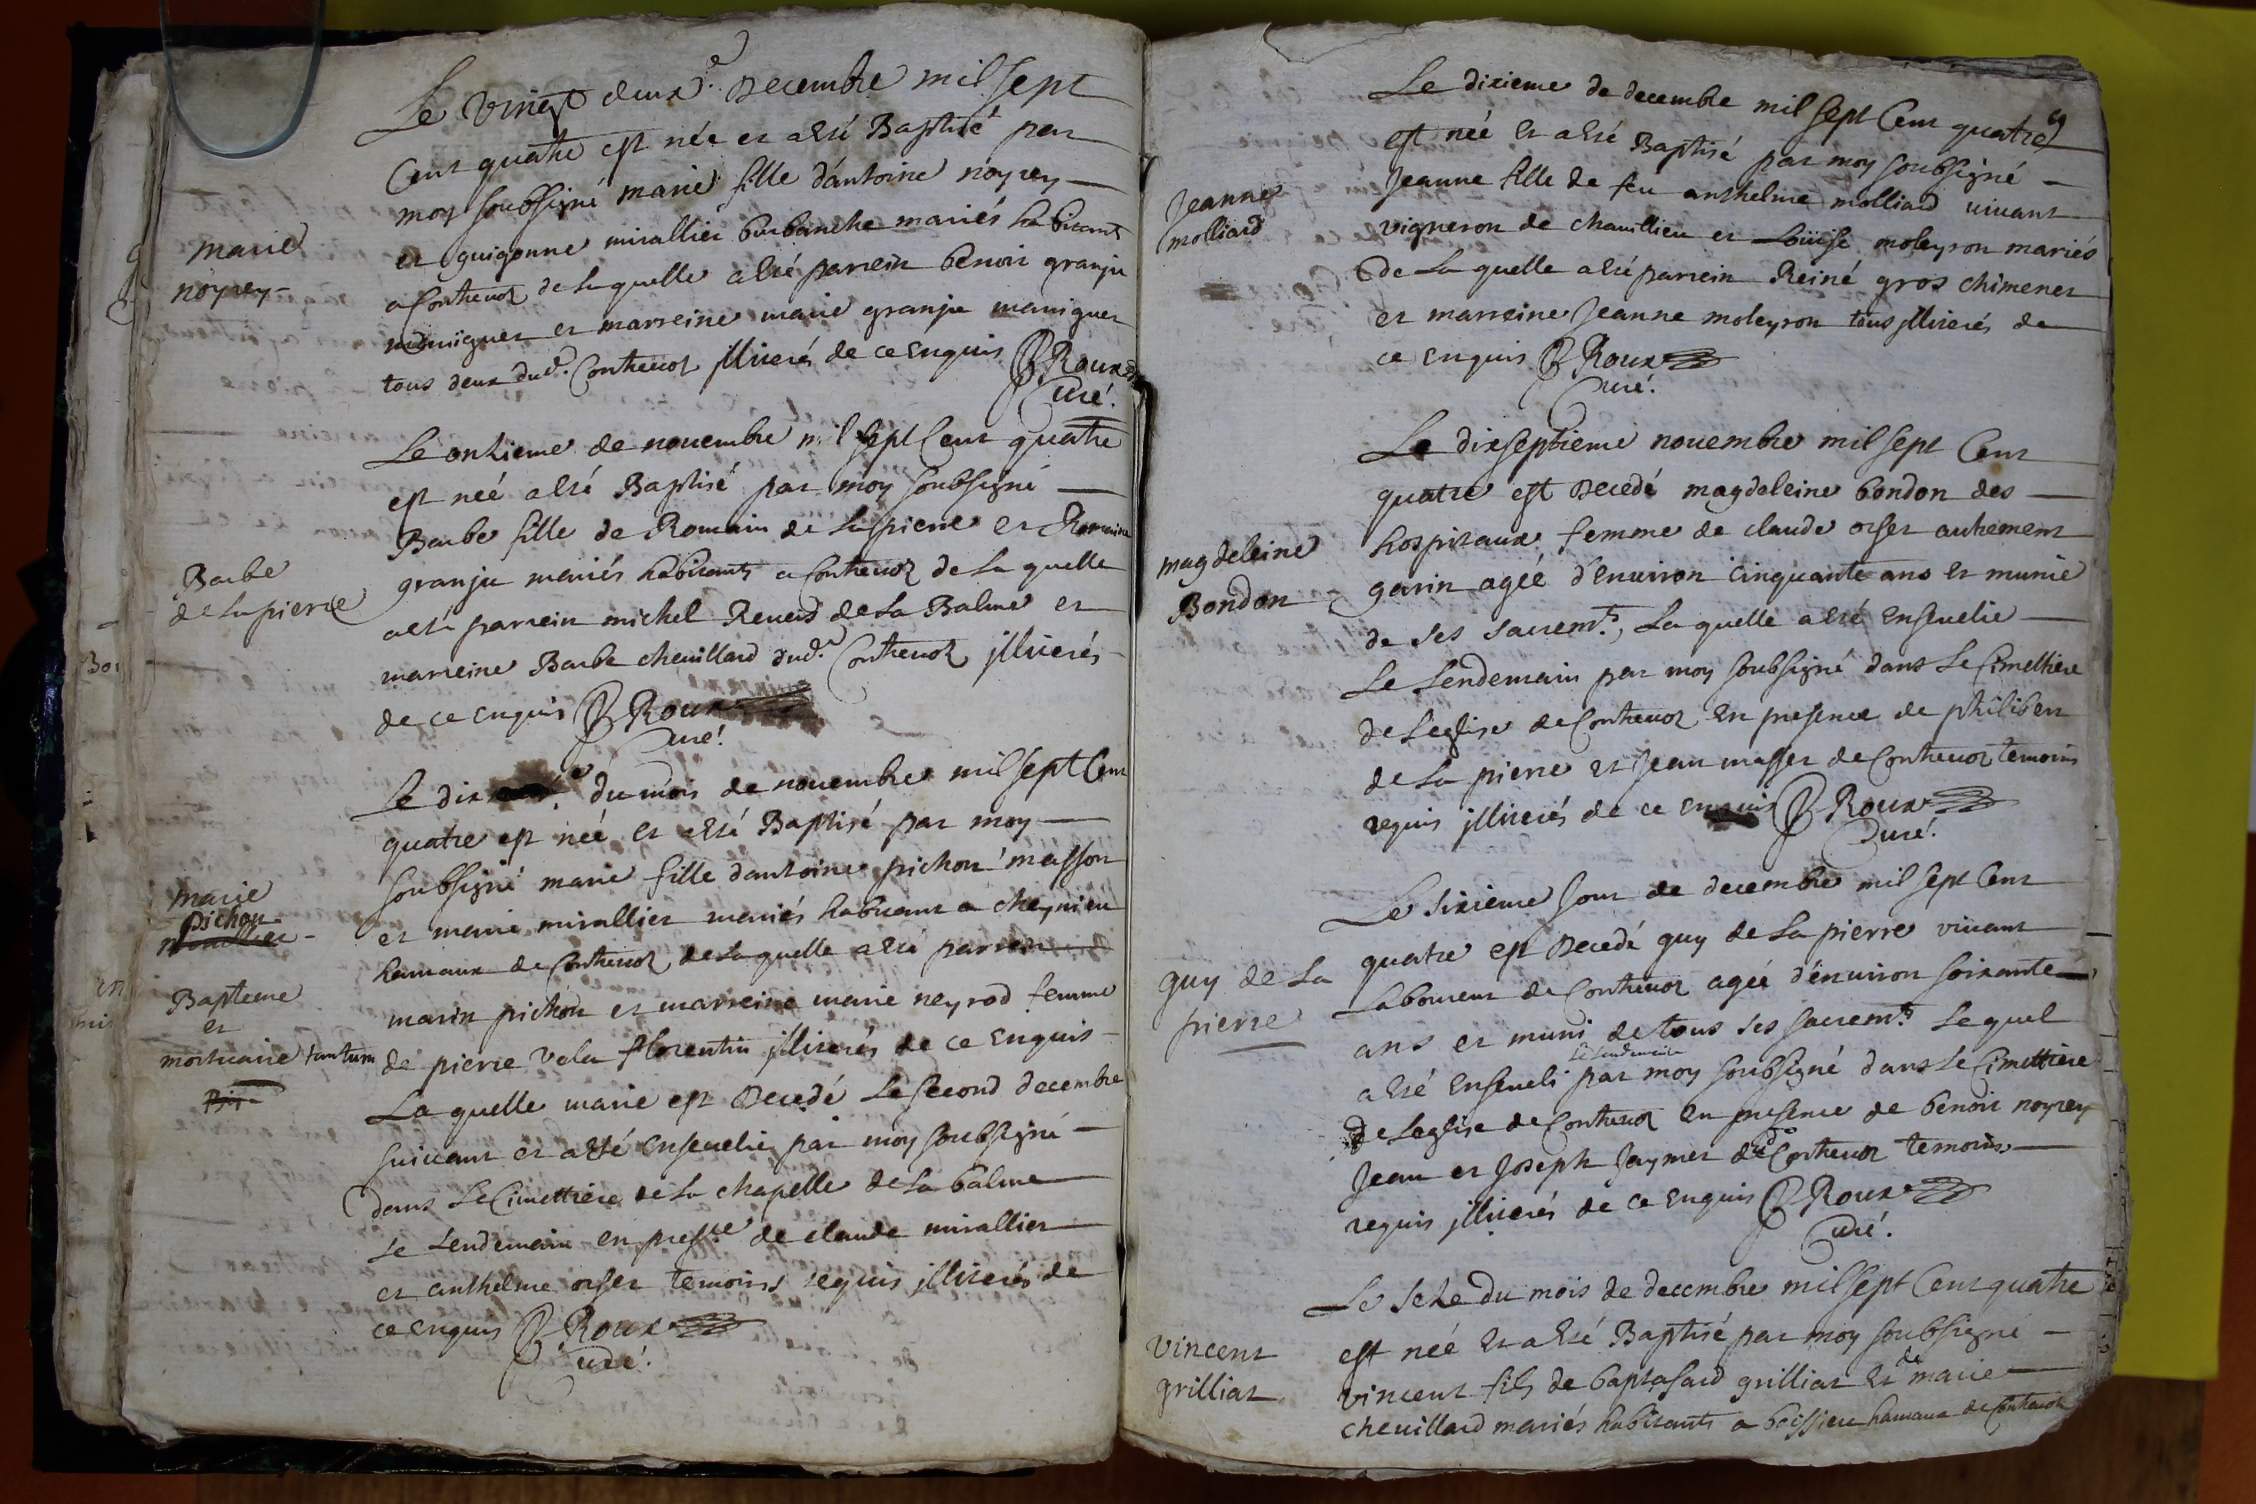 Le vingt deux.e Decembre mil sept
Cent quatre est née et a esté Baptisé par
moy soubsigné marie fille d'antoine noyrey
et guigonne mirallier burbanche mariés habitants
a Contrevoz de la quelle a esté parrein benoit granju
et marreine marie granju maniguet
tous deux dud.t Contrevoz jlliterés de ce enquis B Roux
Curé.
marie
noyrey
Le onzieme de novembre mil sept Cent quatre
est neé a esté Baptisé par moy soubsigné
Barbe fille de Romain de la pierre et Romaine
granju mariés habitants a Contrevoz de la quelle
a esté parrein michel Reverd de la Balme et
marreine Barbe chevillard dud.t Contrevoz jlliterés
de ce enquis B Roux
Curé.
Barbe
de la pierre
Le dix du mois de novembre mil sept Cent
quatre est neé et a esté Baptisé par moy
soubsigné marie fille d'antoine pichon masson
et marie mirallier mariés habitant a cheynieu
hamaux de Contrevoz de la quelle a esté parrein
marin pichon et marreine marie neyrod femme
de pierre vola florentin jlliterés de ce enquis
La quelle marie est Decedé Le second decembre
suivant et a esté ensevelie par moy soubsigné
dans Le Cimettiere de la chapelle de la balme
Le Lendemain en pres.ce de claude mirallier
et anthelme orset temoins requis jlliterés de
ce enquis B Roux
Curé.
marie
Pichon
mirallier
Bapteme
et
mortuaire tantum
Le dixieme de decembre mil sept Cent quatre
est neé et a esté Baptisé par moy soubsigné
Jeanne fille de feu anthelme molliard vivant
vigneron de chavillieu et Loüise moleyron mariés
de La quelle a esté parrein Reiné gros chimenet
et marreine Jeanne moleyron tous jlliterés de
ce enquis B Roux
Curé.
Jeanne
molliard
Le dixseptieme novembre mil sept Cent
quatre est Decedé magdeleine bondon des
hospitaux femme de claude orset autrement
garin ageé d'environ cinquante ans et munie
de ses sacrem.ts, La quelle a esté ensevelie
Le Lendemain par moy soubsigné dans Le Cimettiere
de L'eglise de Contrevoz en presence de philibert
de La pierre et Jean masset de Contrevoz temoins
requis jlliterés de ce enquis B Roux
Curé.
magdeleine
Bondon
Le sixieme Jour de decembre mil sept Cent
quatre est Decedé guy de La pierre vivant
Laboureur de Contrevoz ageé d'environ soixante
ans et muni de tous ses sacrem.ts Le quel
a esté enseveli Le Lendemain par moy soubsigné dans Le Cimettiere
de L'eglise de Contrevoz en presence de benoit noyrey
Jean et Joseph Jaymet dud.t Contrevoz temoins
requis jlliterés de ce enquis B Roux
Curé.
guy de La
pierre
Le seze du mois de decembre mil sept Cent quatre
est neé et a esté Baptisé par moy soubsigné
vincent fils de baptasard grilliat et de marie
chevillard mariés habitants a boissieu hamaux de Contrevoz
vincent
grilliat